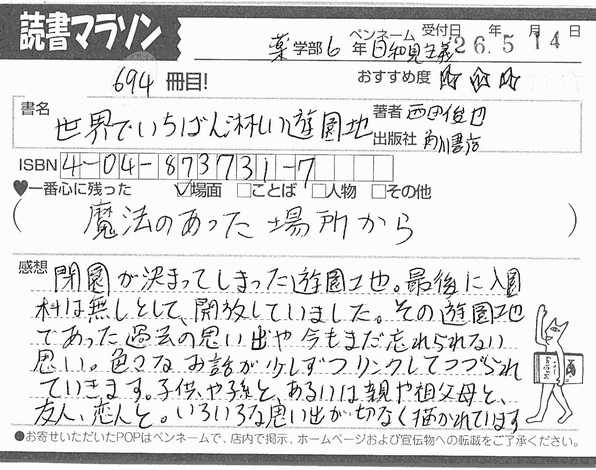 読書マラソン
薬 学部 6 年 ペンネーム 日和見主義 受付日 26年5月14日
694 冊目! おすすめ度 ☆☆☆
書名 世界でいちばん淋しい遊園地 著者 西田俊也
出版社 角川書店
ISBN 4-04-873731-7
♥一番心に残った ☑場面 □ことば □人物 □その他
( 魔法のあった場所から )
感想 閉園が決まってしまった遊園地。最後に入園
料は無しとして、開放していました。その遊園地
であった過去の思い出や今もまだ忘れられない
思い。色々なお話が少しずつリンクしてつづられ
ていきます。子供や孫と、あるいは親や祖父母と、
友人、恋人と。いろいろな思い出が切なく描かれています
●お寄せいただいたPOPはペンネームで、店内で掲示、ホームページおよび宣伝物への転載をご了承ください。